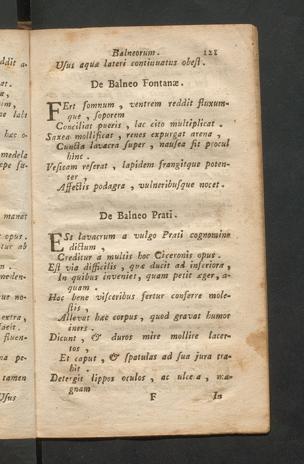 Balneorum. 121
Usus aquæ lateri continuatus obest.
De Balneo Fontanæ.
FErt somnum, ventrem reddit fluxum-
que, soporem
Conciliat pueris, lac cito multiplicat.
Saxea mollificat, renes expurgat arena,
Cuncta lavacra super, nausea sit procul
hinc.
Vesicam reserat, lapidem frangitque poten-
ter,
Affectis podagra, vulneribusque nocet.
De Balneo Prati.
ESt lavacrum a vulgo Prati cognomine
dictum,
Creditur a multis hoc Ciceronis opus.
Est via difficilis, quæ ducit ad inferiora,
In quibus inveniet, quam petit æger, a-
quam.
Hoc bene visceribus fertur conferre mole-
stis,
Allevat hæc corpus, quod gravat humor
iners.
Dicunt, & duros mire mollire lacer-
tos,
Et caput, & spatulas ad sua jura tra-
hit.
Detergit lippos oculos, ac ulcera, ma-
gnam
F In
ddit a-
at.
medela
manat
opus.
tur ab
extra,
tamen
Usus